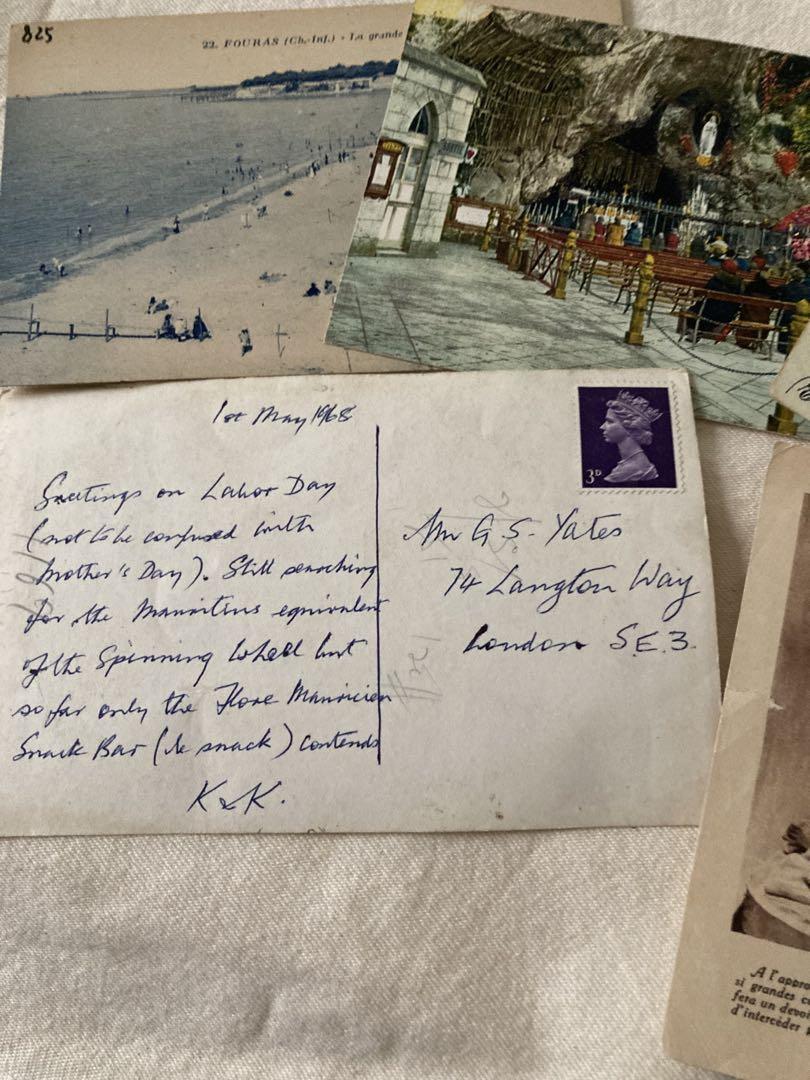 825
22. FOURAS (Ch.-Inf.) - La grande
1st May 1968
Greetings on Labor Day
(not to be confused with
Mother's Day). Still searching
for the Mauritius equivalent
of the Spinning Wheel but
so far only the Flore Mauricien
Snack Bar (le snack) contends
K & K.
3D
Mr G. S. Yates
74 Langton Way
London S.E.3.
A l'appro
si grandes c
fera un devoi
d'intercéder